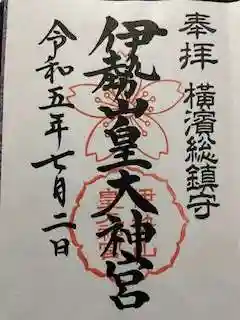 奉拝 横濱総鎮守
伊勢山皇大神宮
令和五年七月二日